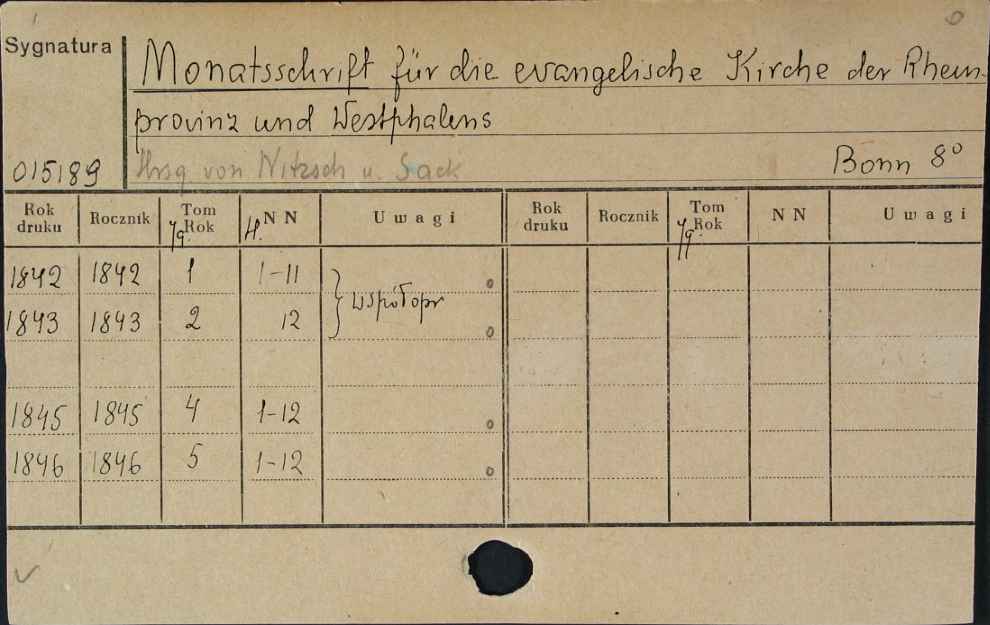 Sygnatura
Monatsschrift für die evangelische Kirche der Rhein-
provinz und Westphalens
015189 Hrsg von Nitzsch u. Sack Bonn 8°
Rok druku Rocznik Tom Jg. Rok H. NN Uwagi Rok druku Rocznik Tom Jg. Rok NN Uwagi
1842 1842 1 1-11 } współopr
1843 1843 2 12
1845 1845 4 1-12
1846 1846 5 1-12